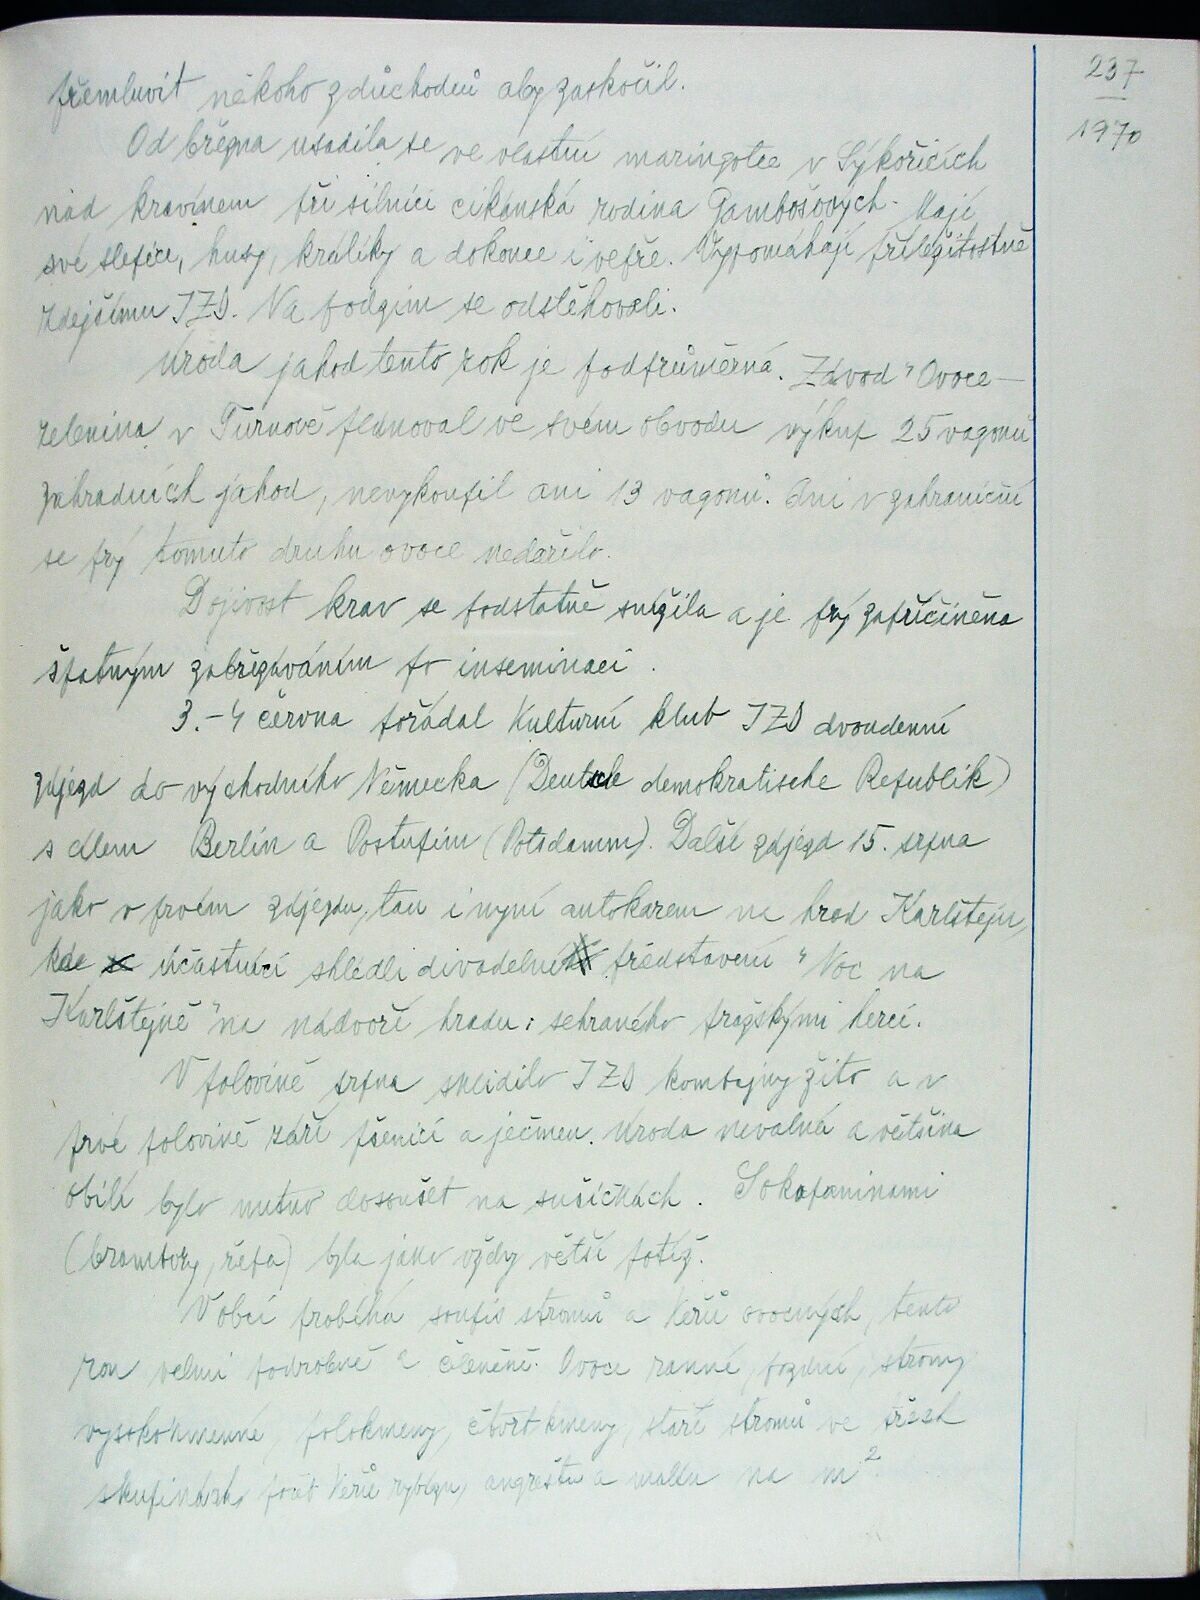 237
1970
přemluvit někoho z důchodců aby zaskočil.
Od března usadila se ve vlastní maringotce v Sýkořicích
nad kravínem při silnici cikánská rodina Gambošových. Mají
své slepice, husy, králíky a dokonce i vepře. Vypomáhají příležitostně
zdejšímu JZD. Na podzim se odstěhovali.
Úroda jahod tento rok je podprůměrná. Závod "Ovoce-
zelenina v Turnově plánoval ve svém obvodu výkup 25 vagonů
zahradních jahod, nevykoupil ani 13 vagonů. Ani v zahraničí
se prý tomuto druhu ovoce nedařilo.
Dojivost krav se podstatně snížila a je prý zapříčiněna
špatným zabřezáváním po inseminaci.
3.-4 června pořádal Kulturní klub JZD dvoudenní
zájezd do východního Německa (Deutsche demokratische Republik)
s cílem Berlín a Postupim (Potsdamm). Další zájezd 15. srpna
jako v prvém zájezdu, tak i nyní autokarem na hrad Karlštejn,
kde účastníci shlédli divadelní představení "Noc na
Karlštejně" na nádvoří hradu; sehraného pražskými herci.
V polovině srpna sklidilo JZD kombajny žito a v
prvé polovině září pšenici a ječmen. Úroda nevalná a většina
obilí bylo nutno dosoušet na sušičkách. S okopaninami
(brambory, řepa) byla jako vždy větší potíž.
V obci probíhá soupis stromů a keřů ovocných, tento
rok velmi podrobně a členěně. Ovoce ranné, pozdní, stromy
vysokokmenné, polokmeny, čtvrtkmeny, stáří stromů ve třech
skupinách, počet keřů rybízu, angreštu a malin na m².